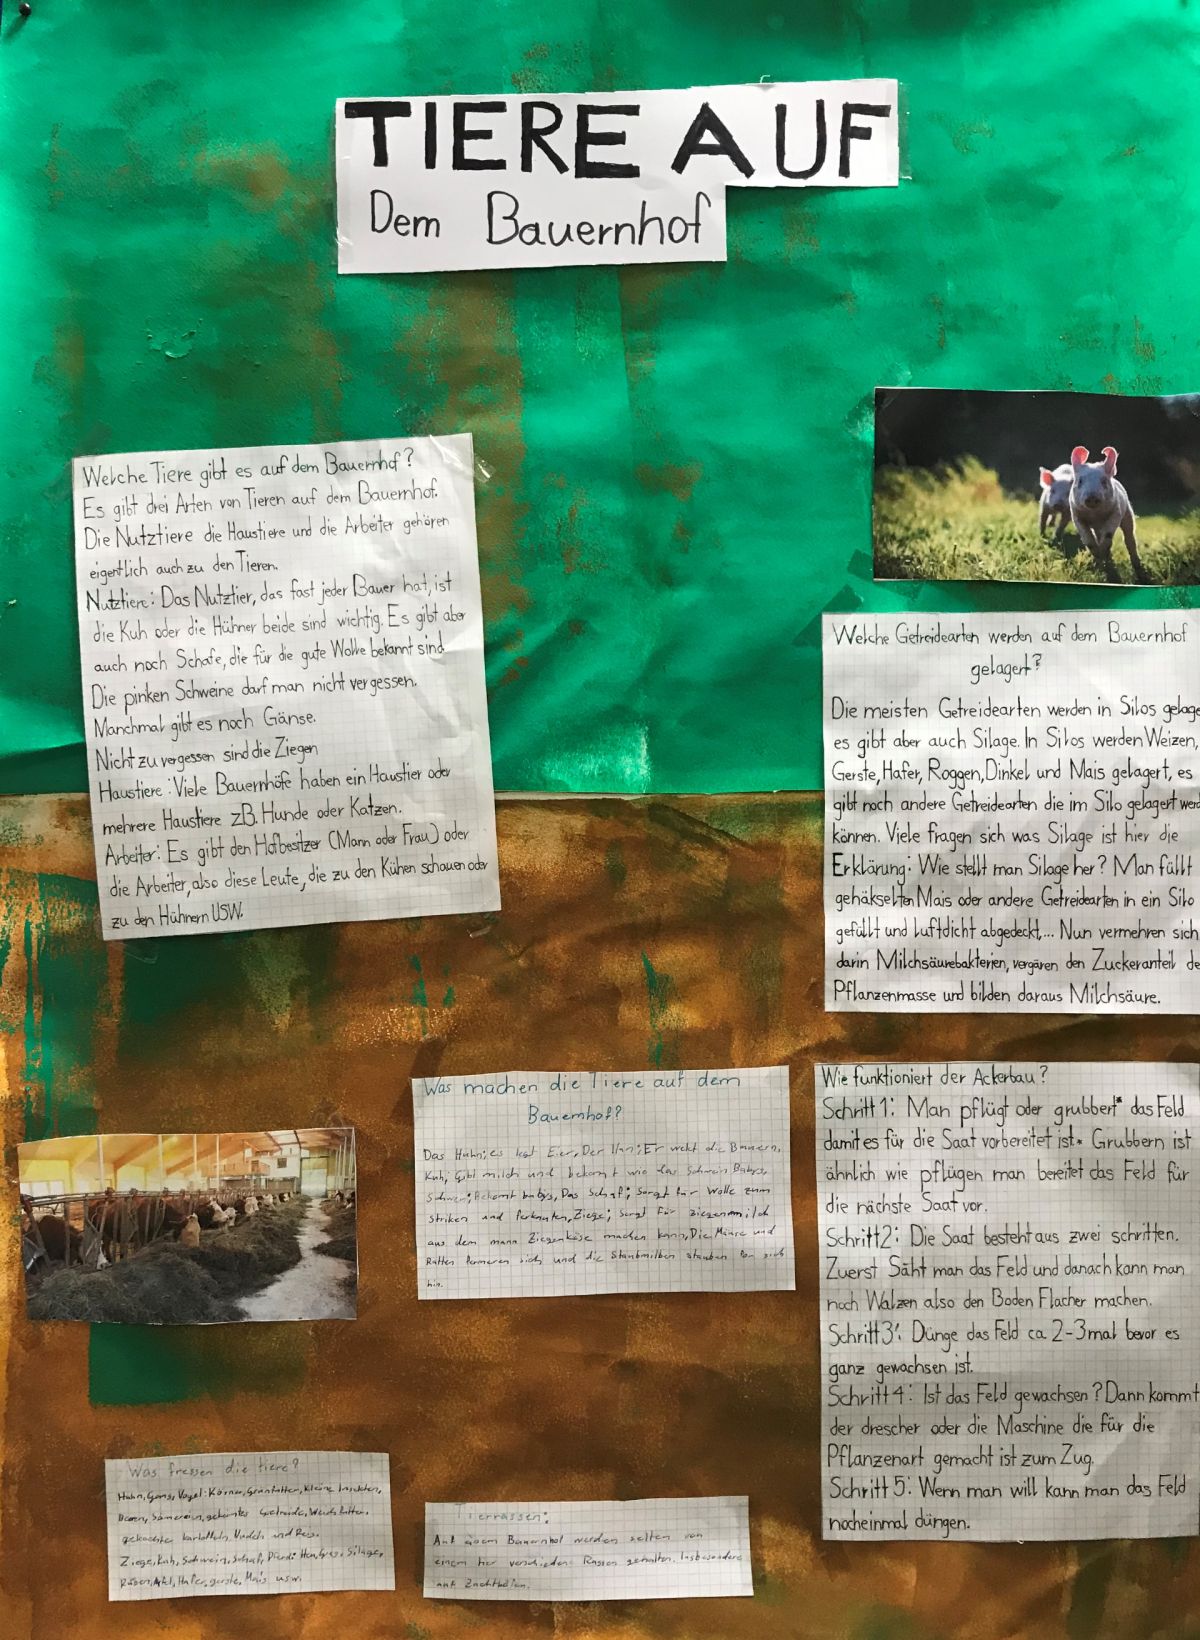 TIERE AUF
Dem Bauernhof
Welche Tiere gibt es auf dem Bauernhof?
Es gibt drei Arten von Tieren auf dem Bauernhof.
Die Nutztiere die Haustiere und die Arbeiter gehören
eigentlich auch zu den Tieren.
Nutztiere: Das Nutztier, das fast jeder Bauer hat, ist
die Kuh oder die Hühner beide sind wichtig. Es gibt aber
auch noch Schafe, die für die gute Wolle bekannt sind
Die pinken Schweine darf man nicht vergessen.
Manchmal gibt es noch Gänse.
Nicht zu vergessen sind die Ziegen
Haustiere: Viele Bauernhöfe haben ein Haustier oder
mehrere Haustiere z.B. Hunde oder Katzen.
Arbeiter: Es gibt den Hofbesitzer (Mann oder Frau) oder
die Arbeiter, also diese Leute, die zu den Kühen schauen oder
zu den Hühnern USW.
Welche Getreidearten werden auf dem Bauernhof
gelagert?
Die meisten Getreidearten werden in Silos gelage
es gibt aber auch Silage. In Silos werden Weizen,
Gerste, Hafer, Roggen, Dinkel und Mais gelagert, es
gibt noch andere Getreidearten die im Silo gelagert werd
können. Viele fragen sich was Silage ist hier die
Erklärung: Wie stellt man Silage her? Man füllt
gehäkselten Mais oder andere Getreidearten in ein Silo
gefüllt und luftdicht abgedeckt,... Nun vermehren sich
darin Milchsäurebakterien, vergären den Zuckeranteil de
Pflanzenmasse und bilden daraus Milchsäure.
Was machen die Tiere auf dem
Bauernhof?
Das Huhn; es legt Eier, Der Han; Er wekt die Bauern,
Kuh; Gibt milch und bekomt wie das Schwein Babys,
Schwein; Bekomt babys, Das Schaf; Sorgt für Wolle zum
striken und Ziege; Sorgt für ziegenmilch
aus dem mann Ziegenkäse machen kann, Die Mäuse und
Ratten sich und die Staubmilben stauben vor sich
hin.
Wie funktioniert der Ackerbau?
Schritt 1: Man pflügt oder grubbert* das Feld
damit es für die Saat vorbereitet ist* Grubbern ist
ähnlich wie pflügen man bereitet das Feld für
die nächste Saat vor.
Schritt 2: Die Saat besteht aus zwei schritten.
Zuerst Säht man das Feld und danach kann man
noch Walzen also den Boden Flacher machen.
Schritt 3: Dünge das Feld ca. 2-3 mal bevor es
ganz gewachsen ist.
Schritt 4: Ist das Feld gewachsen? Dann kommt
der drescher oder die Maschine die für die
Pflanzenart gemacht ist zum Zug.
Schritt 5: Wenn man will kann man das Feld
nocheinmal düngen.
Was fressen die tiere?
Huhn, Gans, Vogel: Körner, Grünfutter, Kleine Insekten,
Beeren, Sämerein, gekeimtes Getreide, Weichfutter,
gekochte kartoffeln, Nudeln und Reis.
Ziege, Kuh, Schwein, Schaf, Pferd: Heu, Gras, Silage,
Rüben, Apfel, Hafer, gerste, Mais usw.
Tierrassen:
Auf Bauernhof werden selten von
einem tier verschiedene Rassen gehalten. Insbesondere
auf Zuchthöfen.